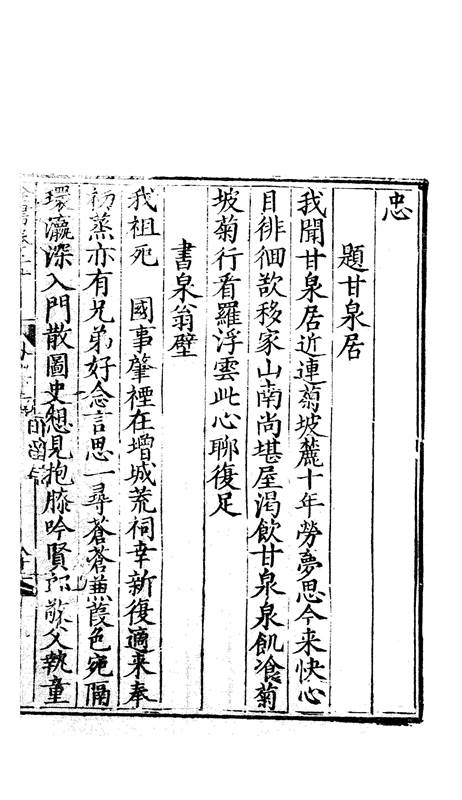 忠
題甘泉居
我聞甘泉居近連菊坡麓十年勞夢思今来快心
目徘徊歆移家山南尚堪屋渴飲甘泉泉飢飡菊
坡菊行看羅浮雲此心聊復足
書泉翁壁
我祖死 國事肇禋在增城荒祠幸新復適来奉
初蒸亦有兄弟好念言思一尋蒼蒼蒹葭色宛隔
環瀛深入門散圖史想見抱膝吟賢郎敬父執童